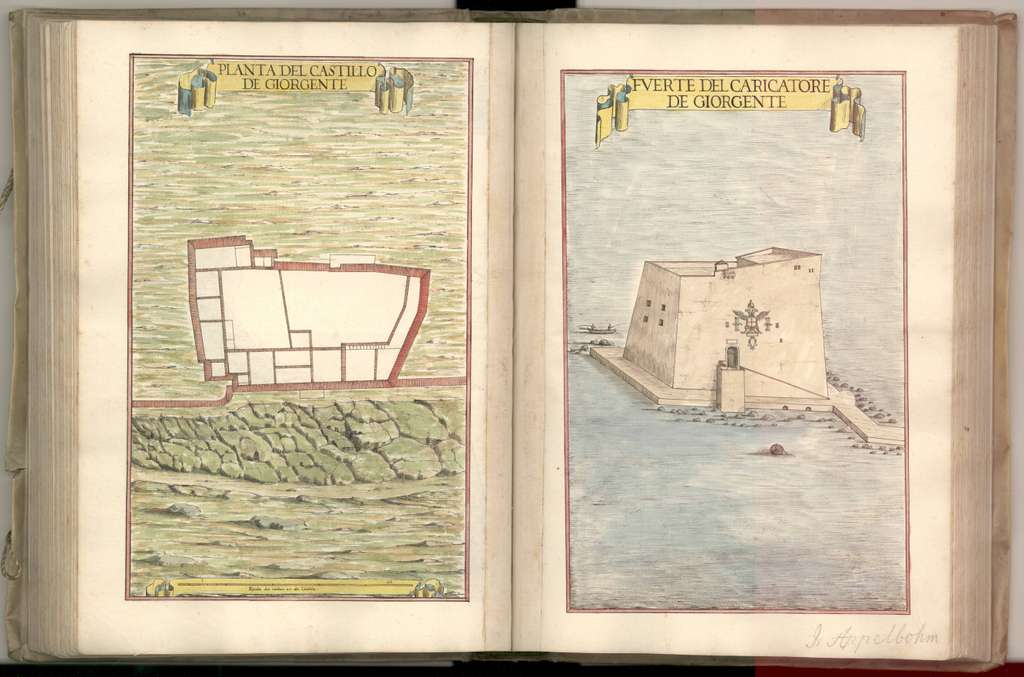 PLANTA DEL CASTILLO
DE GIORGENTE
FVERTE DEL CARICATORE
DE GIORGENTE
Appelbohm